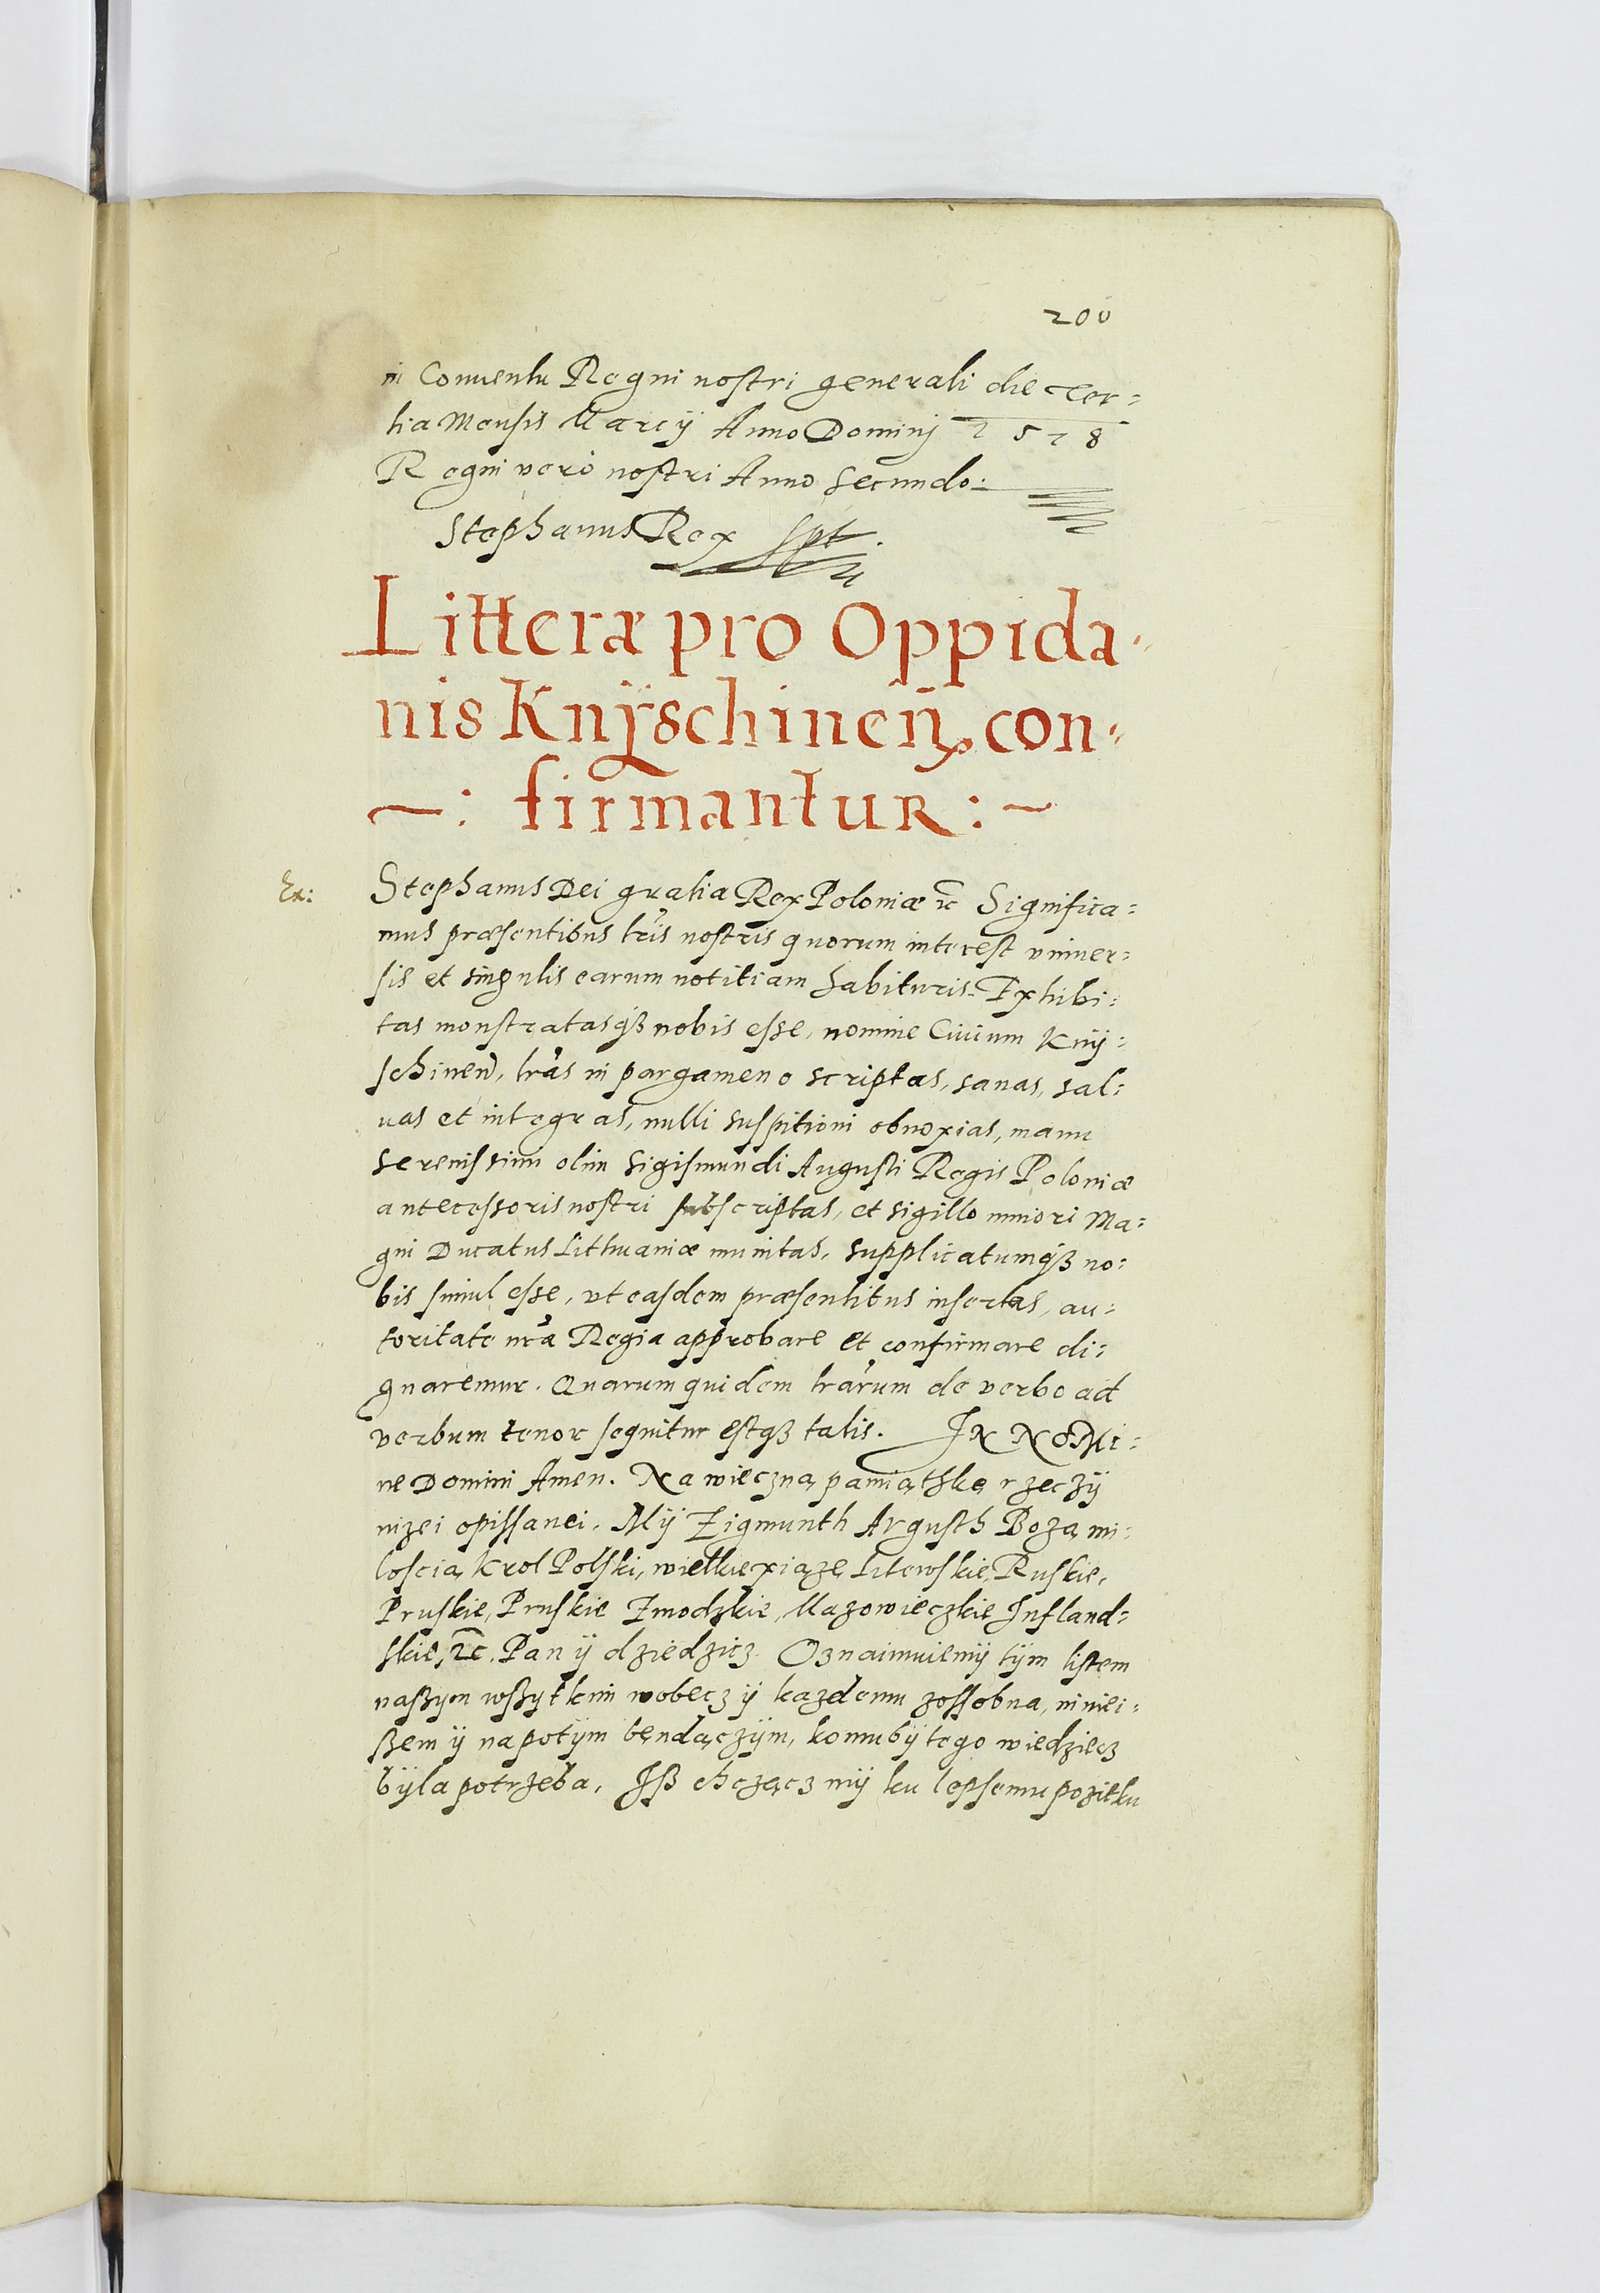 200
in Conuentu Regni nostri generali die ter-
tia Mensis Marcÿ Anno Dominj 1578
Regni vero nostri Anno secundo:
Stephanus Rex spt.
Litteræ pro Oppida-
nis Knÿschineñ. con-
~: firmantur :~
Ex:
Stephanus Dei gratia Rex Poloniæ ꝛc Significa-
mus præsentibus lr̃is nostris quorum interest vniuer-
sis et singulis earum notitiam habituris. Exhibi-
tas monstratasqꝫ nobis esse, nomine Ciuium Knÿ-
schinen̄, lr̃as in pargameno scriptas, sanas, sal-
uas et integras, nulli suspitioni obnoxias, manu
serenissimi olim Sigismundi Augusti Regis Poloniæ
antecessoris nostri subscriptas, et sigillo minori Ma-
gni Ducatus Lithuaniæ munitas, supplicatumqꝫ no-
bis simul esse, vt easdem præsentibus insertas, au-
toritate nr̃a Regia approbare et confirmare di-
gnaremur. Quarum quidem lr̃arum de verbo ad
verbum tenor sequitur estqꝫ talis. IN NOMI-
ne Domini Amen. Na wieczną pamiąthkę rzeczÿ
nizei opissanei. Mÿ Zigmunth Avgusth Bozą mi-
loscią Krol Polski, wielkie xiązę Litewskie, Ruskie,
Pruskie, Pruskie Zmodzkie, Mazowieczkie Infland-
skie, ꝛc. Pan ÿ dziedzicz. Oznaimuiemÿ tÿm listem
naßym wßytkim wobecz ÿ kazdemu zossobna, niniei-
ßem ÿ napotÿm bendączÿm, komubÿ tego wiedziecz
bÿla potrzeba, Iß chcząncz mÿ ku lepsemu pozitku